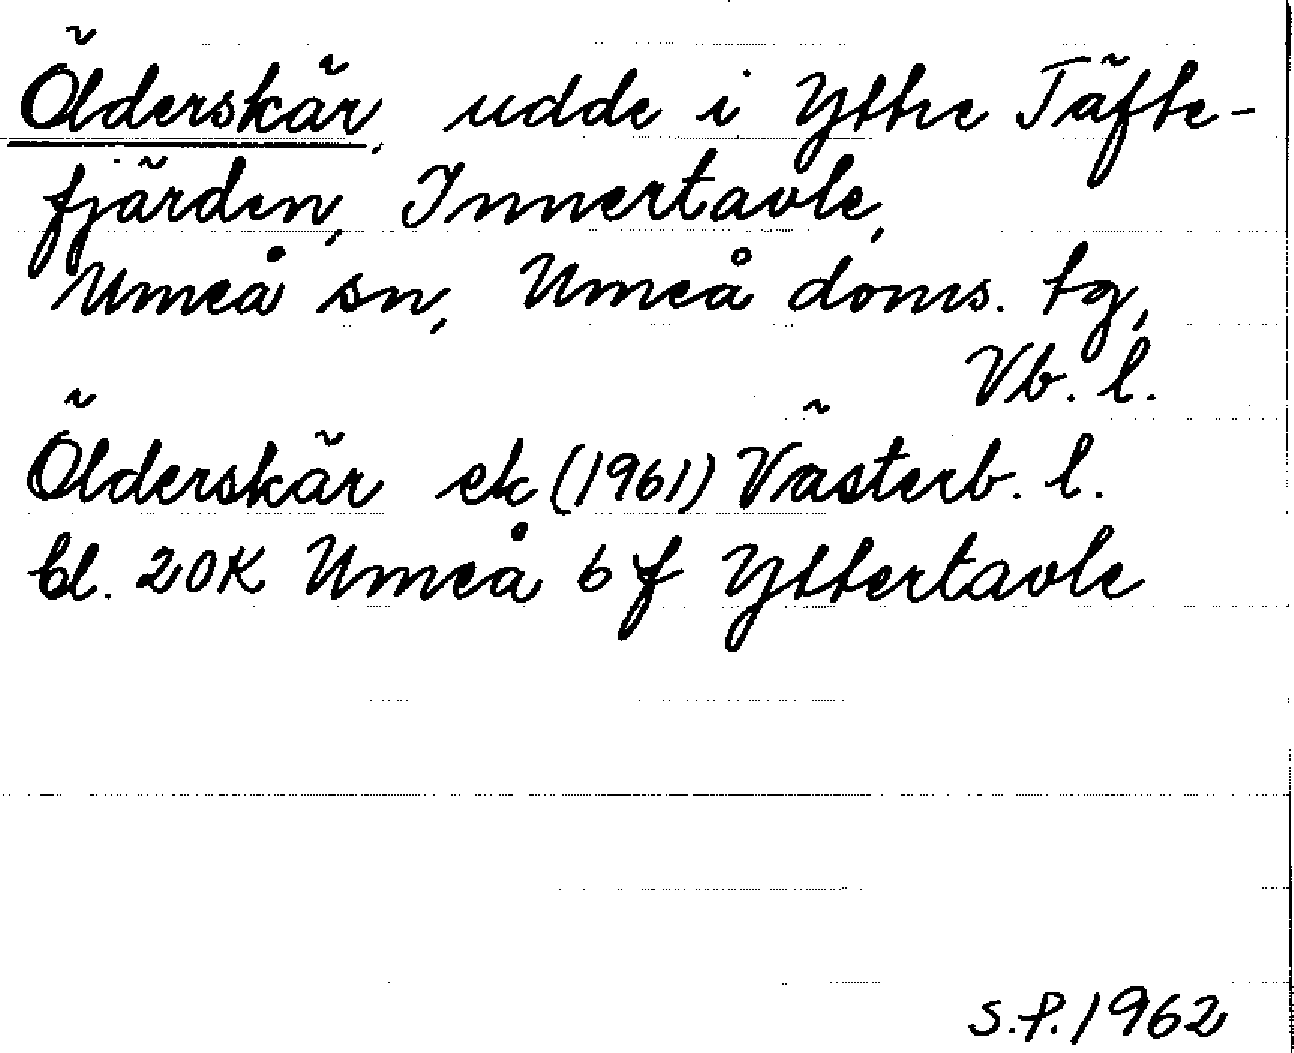 Ölderskär, udde i Yttre Täfte-
fjärden, Innertavle,
Umeå sn, Umeå doms. tg,
Vb. l.
Ölderskär ek (1961) Västerb. l.
bl. 20K Umeå 6 f Yttertavle
S.P. 1962